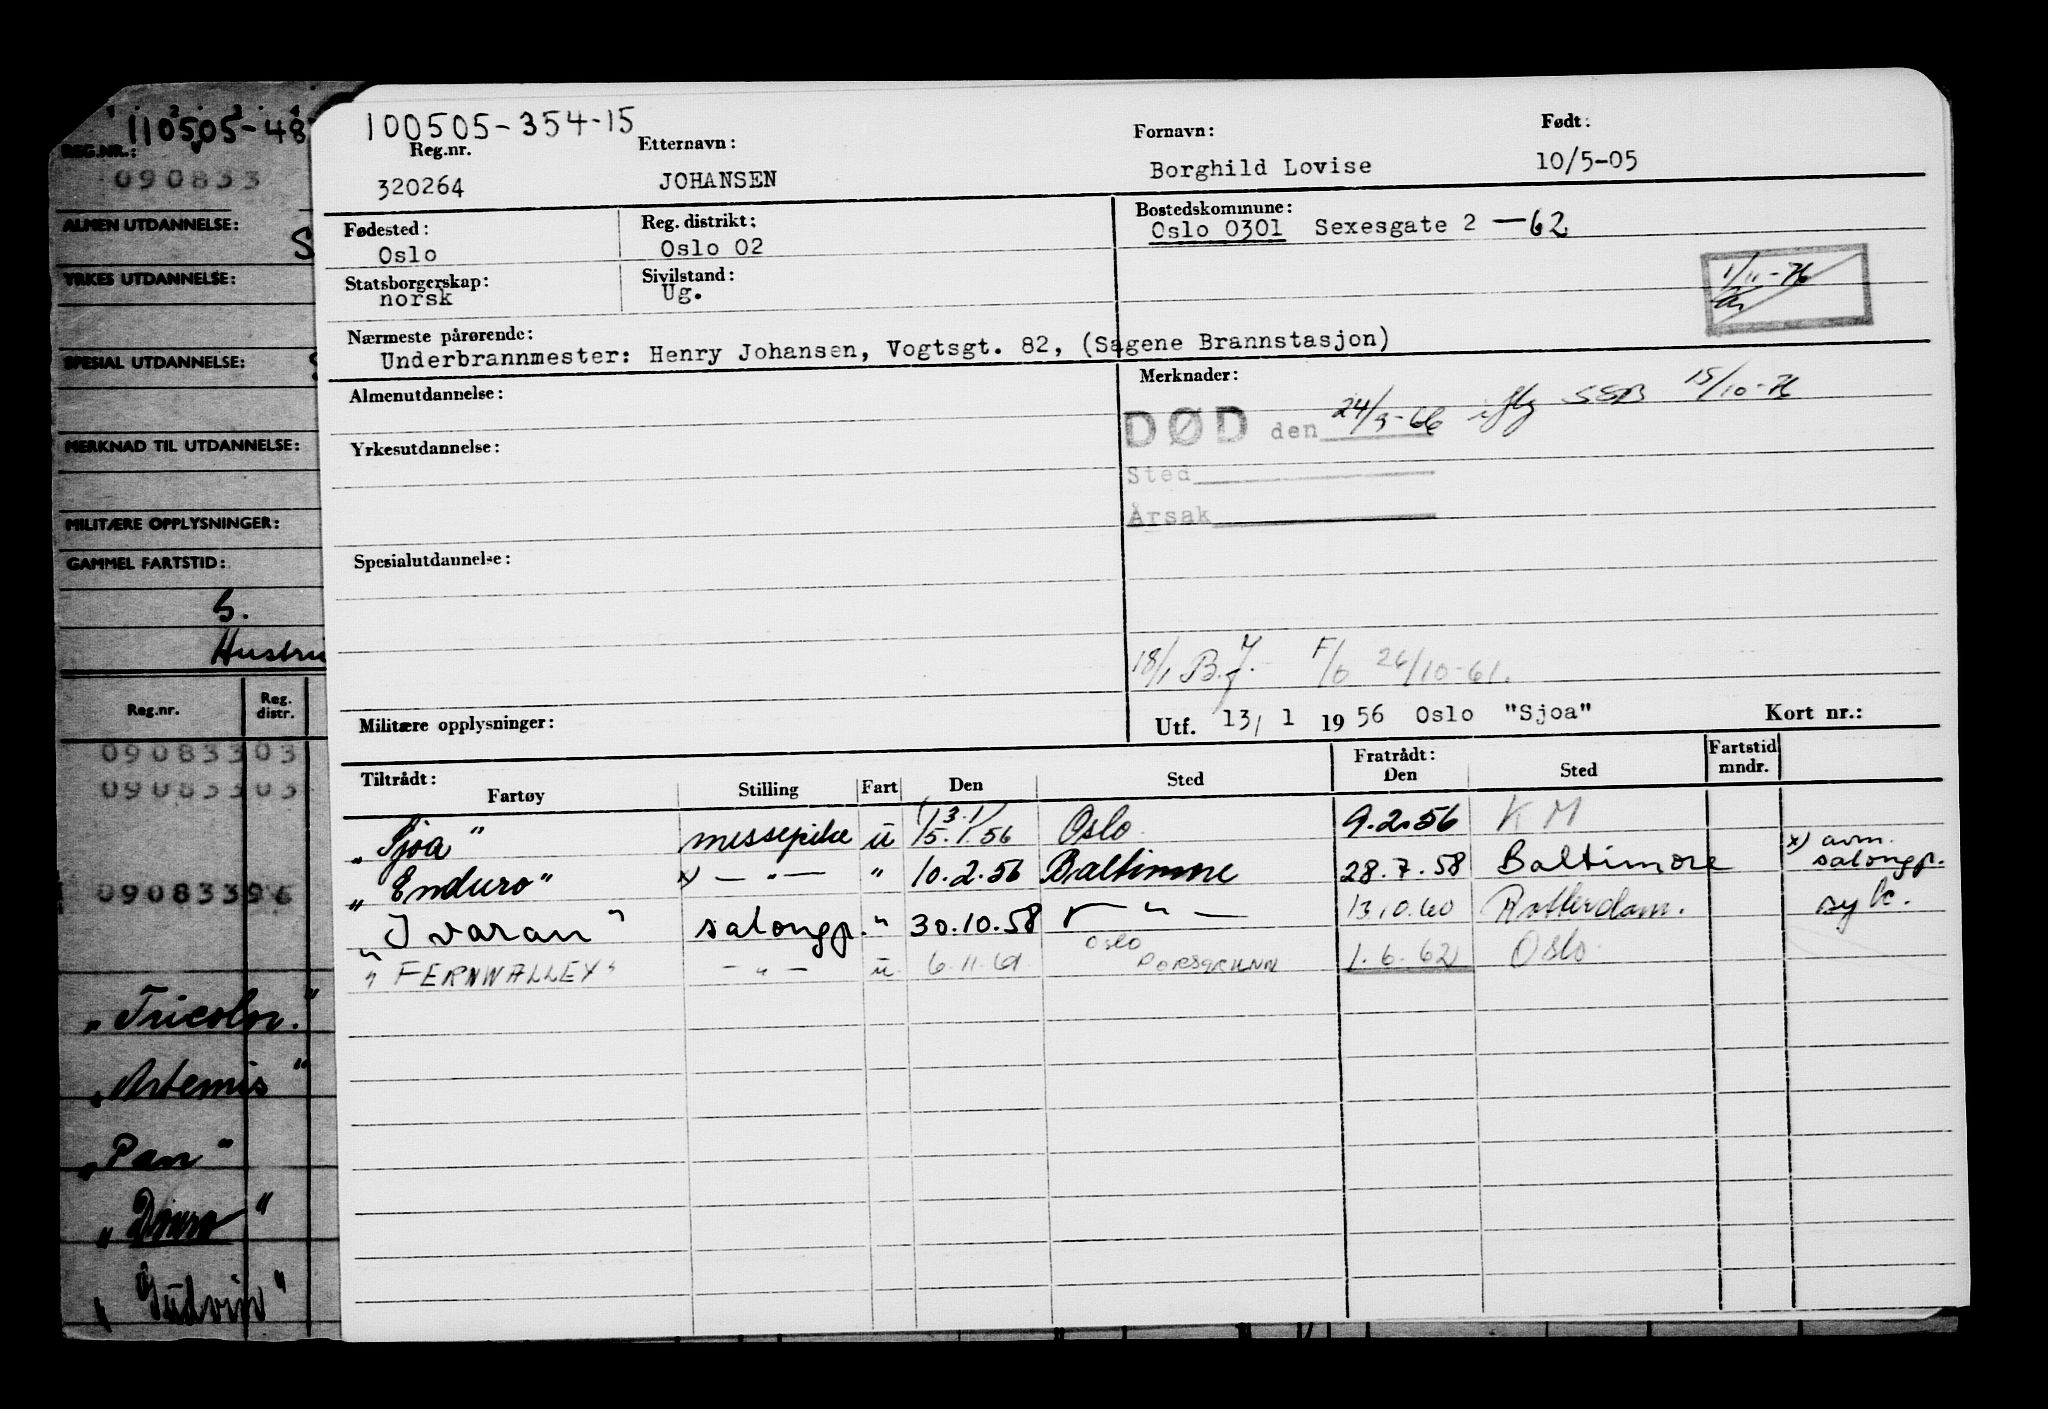 110505-48
REG.NR.:
090833
ALMEN UTDANNELSE:
S
YRKES UTDANNELSE:
SPESIAL UTDANNELSE:
MERKNAD TIL UTDANNELSE:
MILITÆRE OPPLYSNINGER:
GAMMEL FARTSTID:
Hustru
Reg.nr. Reg. distr.
09083303
09083303
09083396
"Tricolor."
"Artemis"
"Pan"
"Gudvin"
100505-354-15
Reg.nr. Etternavn: Fornavn: Født:
320264 JOHANSEN Borghild Lovise 10/5-05
Fødested: Reg. distrikt: Bostedskommune:
Oslo Oslo 02 Oslo 0301 Sexesgate 2 —62
Statsborgerskap: Sivilstand:
norsk Ug.
1/11-76
Nærmeste pårørende:
Underbrannmester: Henry Johansen, Vogtsgt. 82, (Sagene Brannstasjon)
Almenutdannelse: Merknader:
DØD den 24/9-66 iflg SSB 15/10-76
Yrkesutdannelse:
Sted
Årsak
Spesialutdannelse:
18/1 B.J. F/O 26/10-61.
Militære opplysninger: Utf. 13/ 1 1956 Oslo "Sjoa" Kort nr.:
Tiltrådt: Fratrådt: Fartstid mndr.
Fartøy Stilling Fart Den Sted Den Sted
"Sjoa" messepike u (13.1) 15.1.56 Oslo 9.2.56 K M
"Enduro" x) — " — " 10.2.56 Baltimore 28.7.58 Baltimore x) avm. salongp.
"Ivaran" salongp. " 30.10.58 — " — 13.10.60 Rotterdam. syk.
"FERNWALLEY" — " — u 6.11.61 Oslo PORSGRUNN 1.6.62 Oslo